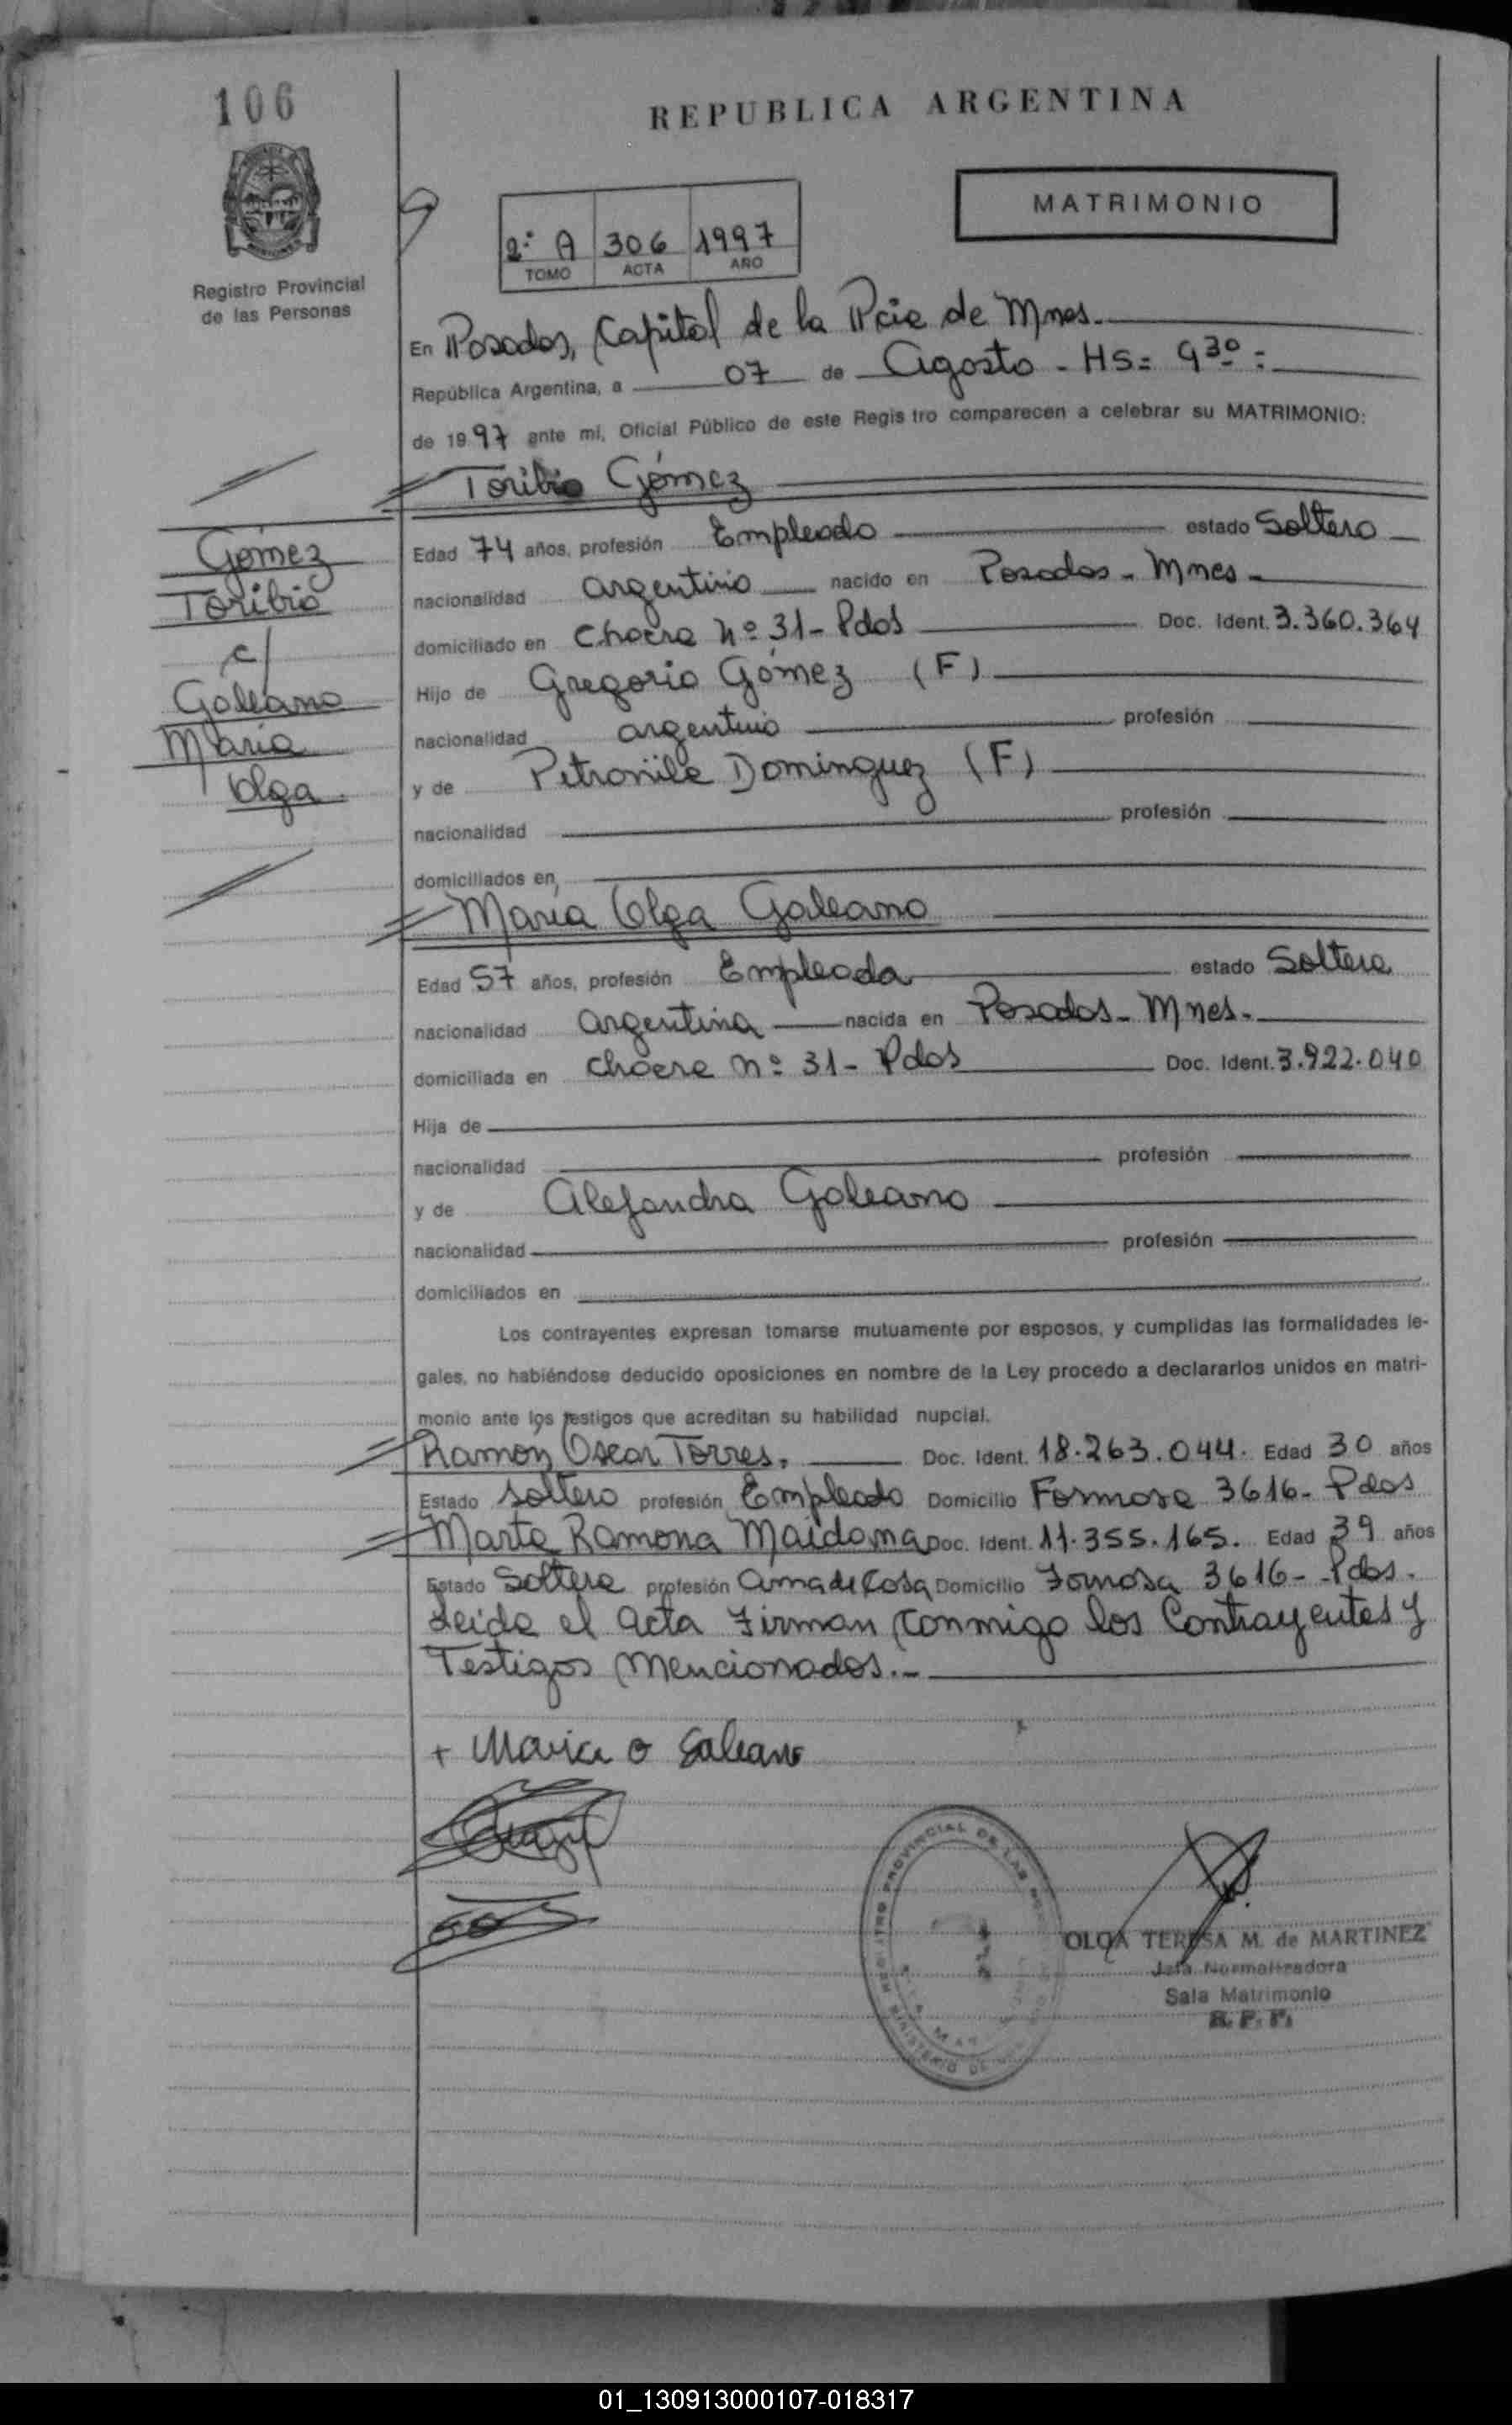 106
REPUBLICA ARGENTINA
MATRIMONIO
2º A 306 1997
TOMO ACTA AÑO
Registro Provincial
de las Personas
En Posadas, Capital de la Pcia de Mnes.
República Argentina, a 07 de Agosto - HS= 9 30 =
de 1997 ante mi, Oficial Público de este Registro comparecen a celebrar su MATRIMONIO:
Toribio Gómez
Gómez
Toribio
c/
Galeano
María
Olga
Edad 74 años, profesión Empleado estado Soltero
nacionalidad argentino nacido en Posadas - Mnes -
domiciliado en Chacra Nº 31 - Pdas Doc. Ident. 3.360.364
Hijo de Gregorio Gómez (F)
nacionalidad argentino profesión
y de Petronila Dominguez (F)
nacionalidad profesión
domiciliados en
María Olga Galeano
Edad 57 años, profesión Empleada estado Soltera
nacionalidad argentina nacida en Posadas - Mnes.
domiciliada en Chacra nº 31 - Pdas Doc. Ident. 3.922.040
Hija de
nacionalidad profesión
y de Alejandra Galeano
nacionalidad profesión
domiciliados en
Los contrayentes expresan tomarse mutuamente por esposos, y cumplidas las formalidades le-
gales, no habiéndose deducido oposiciones en nombre de la Ley procedo a declararlos unidos en matri-
monio ante los testigos que acreditan su habilidad nupcial.
Ramon Oscar Torres. Doc. Ident. 18.263.044. Edad 30 años
Estado soltero profesión Empleado Domicilio Formosa 3616 - Pdas
Marta Ramona Maidana Doc. Ident. 11.355.165. Edad 39 años
Estado Soltera profesión ama de Casa Domicilio Formosa 3616 - Pdas.
Leida el acta Firman Conmigo los Contrayentes y
Testigos Mencionados.-
+ Maria O Galeano
OLGA TERESA M. de MARTINEZ
Jefa Normalizadora
Sala Matrimonio
R. P. P.
01_130913000107-018317